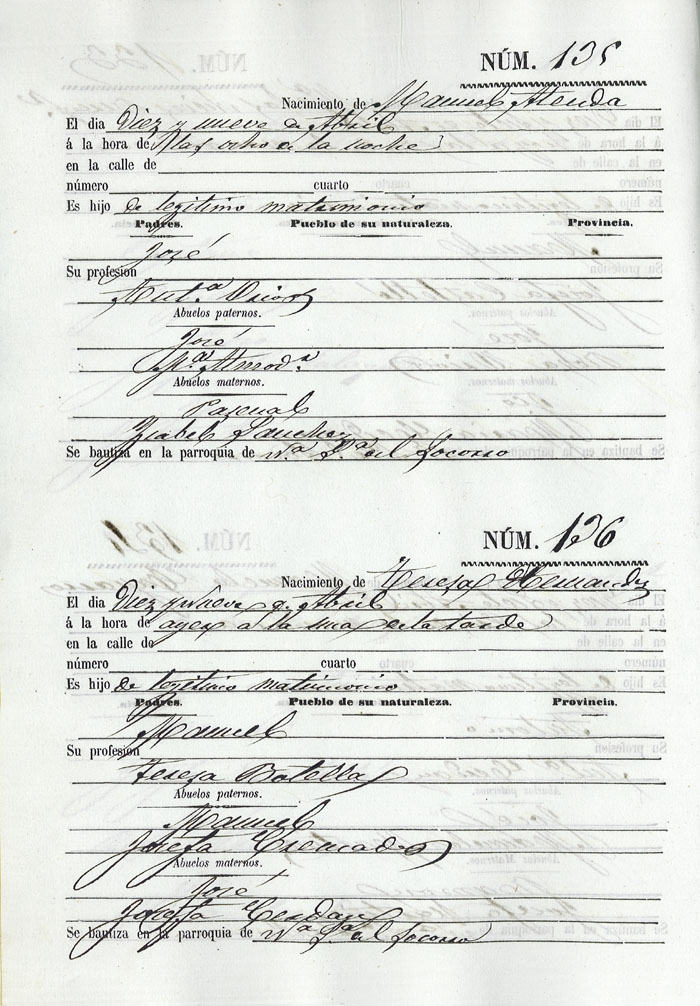 NÚM. 135
Nacimiento de Manuel
El dia Diez y nueve de Abril
á la hora de las ocho de la noche
en la calle de
número cuarto
Es hijo de legitimo matrimonio
Padres. Pueblo de su naturaleza. Provincia.
José
Su profesion
Ant.ª
Abuelos paternos.
José
Abuelos maternos.
Pascual
Isabel Sanchez
Se bautiza en la parroquia de N.ª S.ª del Socorro
NÚM. 136
Nacimiento de Teresa Hernandez
El dia Diez y Nueve d. Abril
á la hora de ayer á la una de la tarde
en la calle de
número cuarto
Es hijo de legitimo matrimonio
Padres. Pueblo de su naturaleza. Provincia.
Manuel
Su profesion
Teresa Botella
Abuelos paternos.
Manuel
Josefa Cremades
Abuelos maternos.
José
Josefa Cerdan
Se bautiza en la parroquia de N.ª S.ª del Socorro